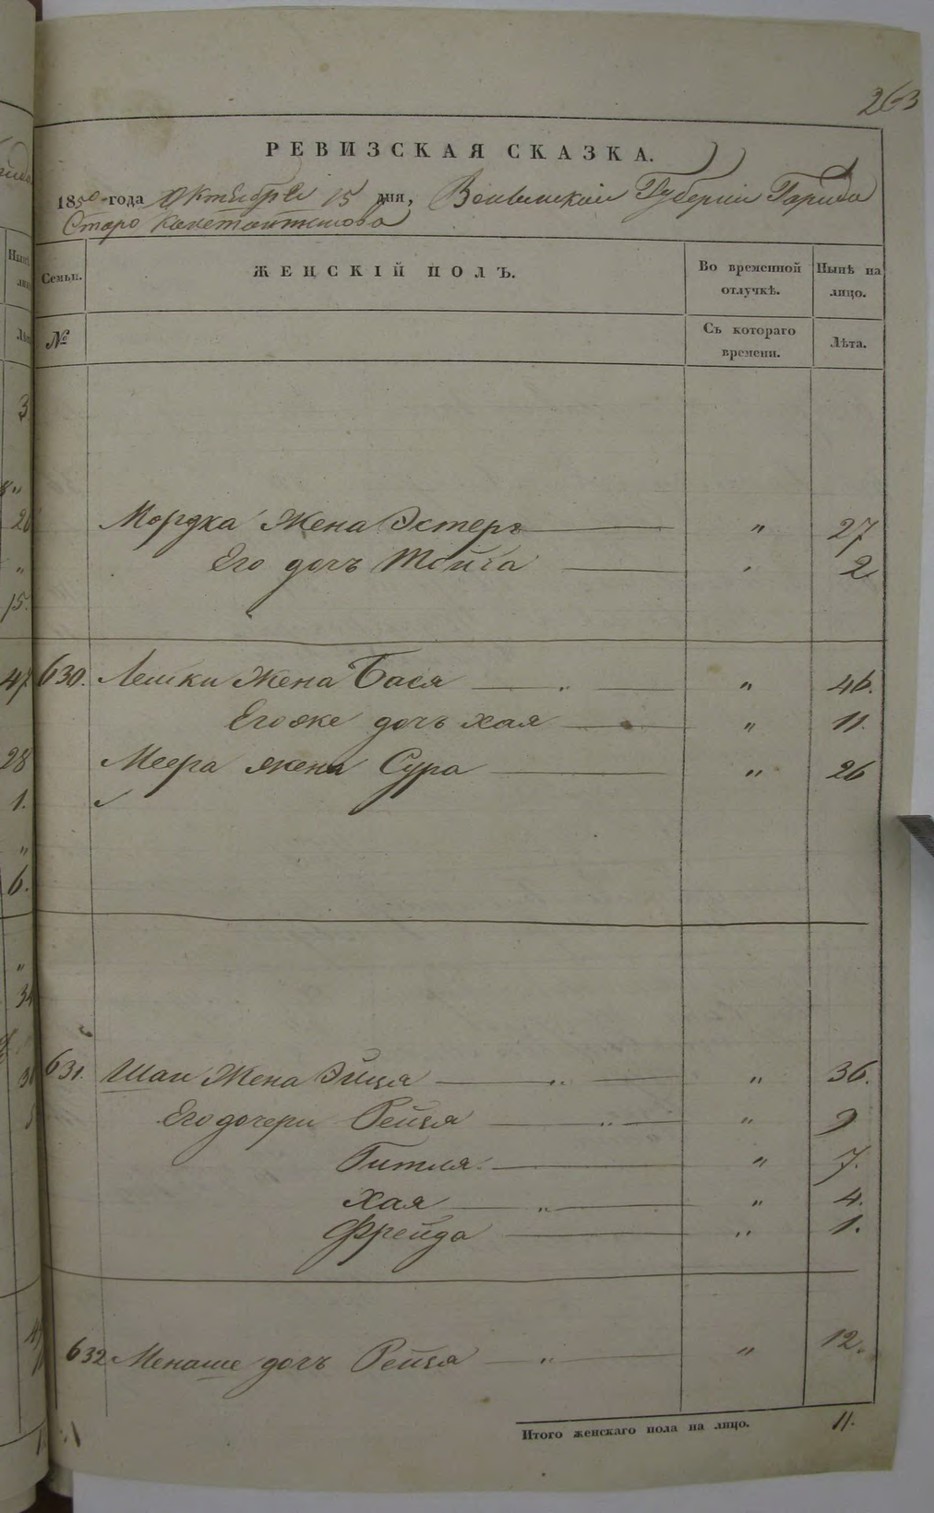 263
РЕВИЗСКАЯ СКАЗКА.
1850 года Октября 15 дня, Волынской Губернии Города
Старо Константинова
Семьи.
ЖЕНСКІЙ ПОЛЪ.
Во временной отлучкѣ.
Нынѣ на лицо.
№
Съ котораго времени.
Лѣта.
Мордка Жена Эстеръ " 27
Его дочь 2
630. Лейки Жена Бася " 46.
Его же дочь Хая " 11.
Меера жена Сура " 26
631. Шаи Жена Эйдля " 36.
Его дочери Рейзя " 9
Гитля " 7.
Хая " 4.
Фрейда " 1.
632 Менаше дочь Рейзя " 12.
Итого женскаго пола на лицо. 11.
3
20
"
15.
47
28
1.
"
6.
"
34